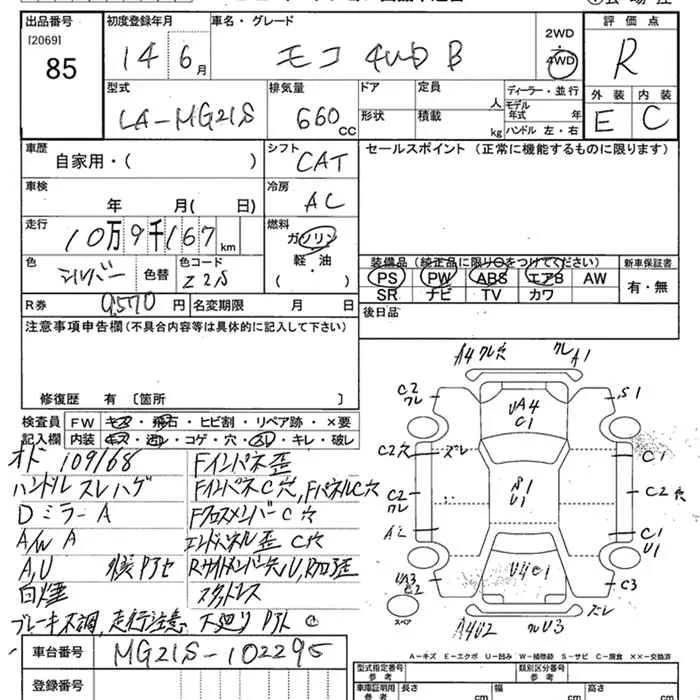 出品番号 初度登録年月 車名・グレード 2WD 評価点
[2069] 85 14 6月 モコ 4WD B 4WD R
型式 排気量 ドア 定員 人 ディーラー・並行 外装 内装
LA-MG21S 660cc 形状 積載 kg モデル年式 年 E C
ハンドル 左・右
車歴 自家用・( ) シフト CAT セールスポイント(正常に機能するものに限ります)
車検 年 月( 日) 冷房 AC
走行 10万9千167km 燃料 ガソリン
軽・油
( )
色 シルバー 色替 色コード Z2S
装備品(純正品に限り○をつけてください) 新車保証書
PS PW ABS エアB AW 有・無
SR ナビ TV カワ
R券 9,570円 名変期限 月 日 後日品
注意事項申告欄(不具合内容等は具体的に記入して下さい)
修復歴 有 〔箇所 〕
検査員 FW キズ・飛石・ヒビ割・リペア跡・×要
記入欄 内装 キズ・汚レ・コゲ・穴・スレ・キレ・破レ
オド 109168
ハンドルスレハゲ
DミラーA
A/W A
A,U
白煙
ブレーキ不調,走行注意,下廻り
Fインパネ歪
FインパネC穴,FパネルC穴
FクロスメンバーC穴
エンドパネル歪 C穴
RサイドメンバーU,Rフロア歪
スタッドレス
A4 ワレ 穴
ワレ A1
C2
ワレ
S1
UA4
C1
C2穴
ズレ
C1
C2
ワレ
S1
U1
C2穴
A2
C1
U1
UA3
E2
U4C1
C3
スペア
A4U2
ズレ
U3
A-キズ E-エクボ U-凹み W-補修跡 S-サビ C-腐食 ××-交換済
車台番号 MG21S-102295
登録番号
型式指定番号 参考 類別区分番号 参考
車庫証明用 参考 長さ cm 幅 cm 高さ cm